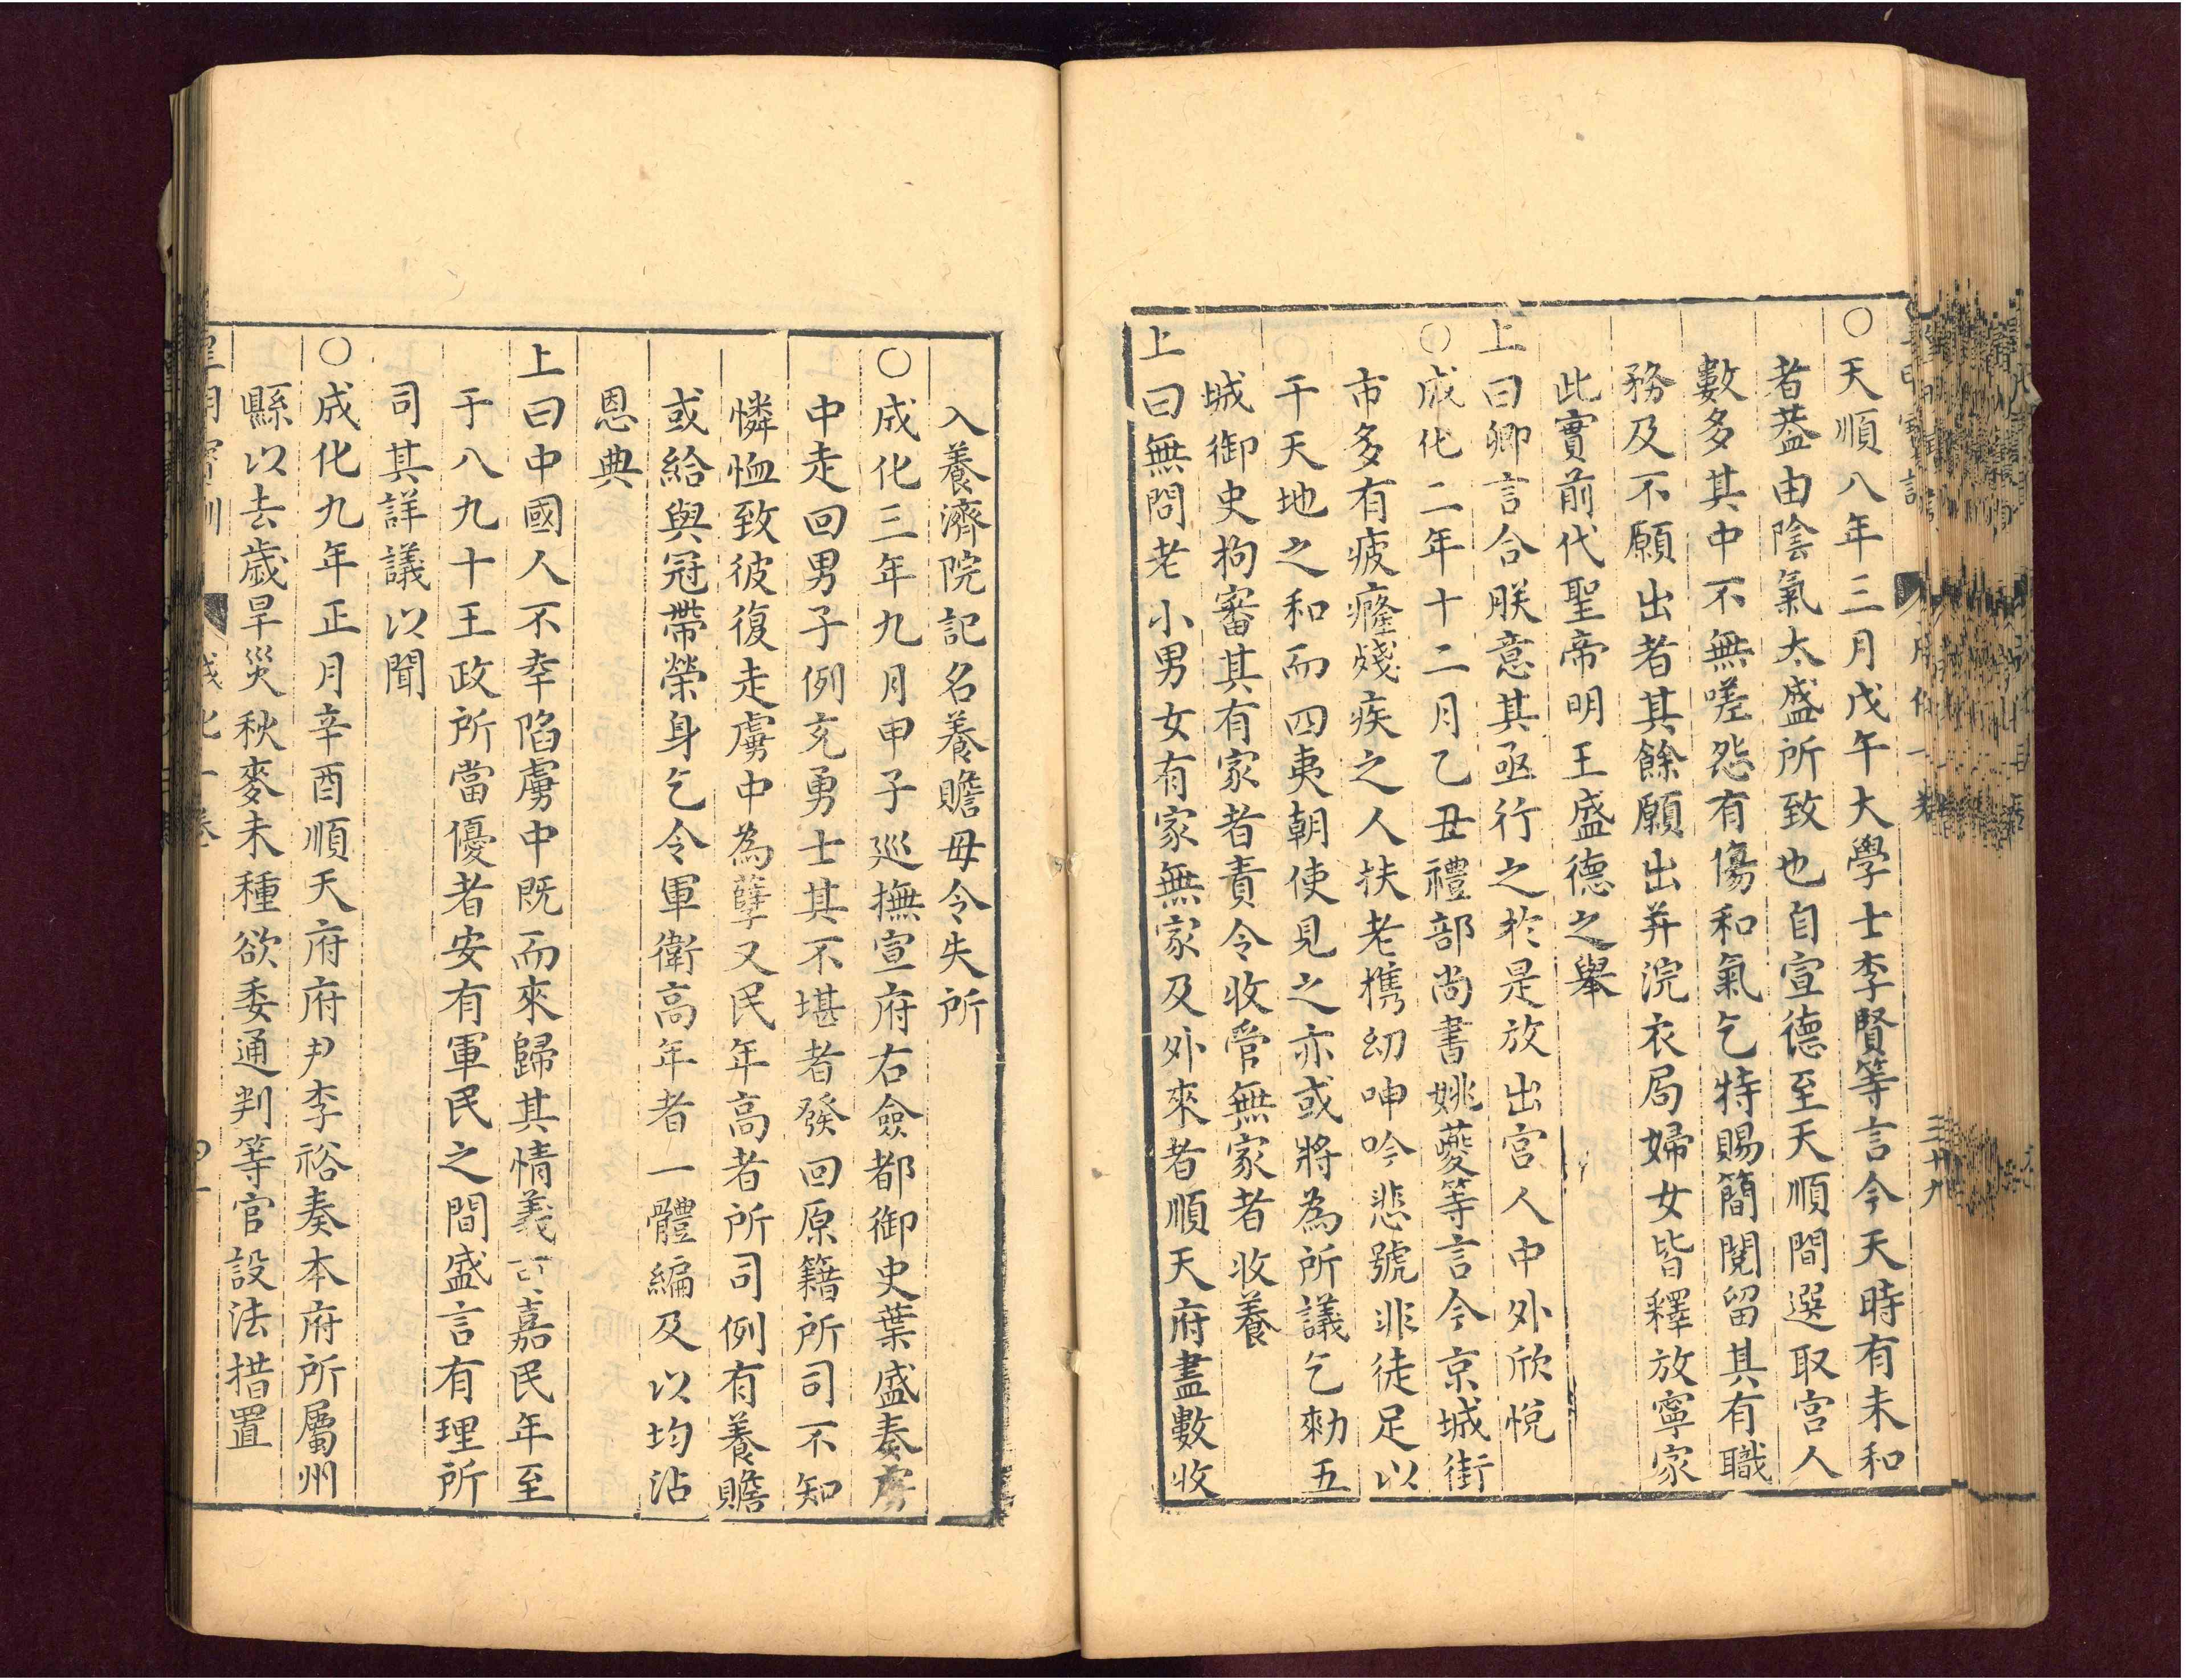 ○天順八年三月戊午大學士李賢等言今天時有未和
者葢由陰氣太盛所致也自宣德至天順間選取宮人
數多其中不無嗟怨有傷和氣乞特賜簡閱留其有職
務及不願出者其餘願出并浣衣局婦女皆釋放寧家
此實前代聖帝明王盛德之舉
上曰卿言合朕意其亟行之於是放出宮人中外欣悅
○成化二年十二月乙丑禮部尚書姚夔等言今京城街
市多有疲癃殘疾之人扶老携幼呻吟悲號非徒足以
干天地之和而四夷朝使見之亦或將為所議乞勑五
城御史拘審其有家者責令收管無家者收養
上曰無問老小男女有家無家及外來者順天府盡數收
入養濟院記名養贍毋令失所
○成化三年九月甲子巡撫宣府右僉都御史葉盛奏虜
中走回男子例充勇士其不堪者發回原籍所司不知
憐恤致彼復走虜中為孽又民年高者所司例有養贍
或給與冠帶榮身乞令軍衛高年者一體編及以均沾
恩典
上曰中國人不幸陷虜中既而來歸其情義可嘉民年至
于八九十王政所當優者安有軍民之間盛言有理所
司其詳議以聞
○成化九年正月辛酉順天府府尹李裕奏本府所屬州
縣以去歲旱災秋麥未種欲委通判等官設法措置